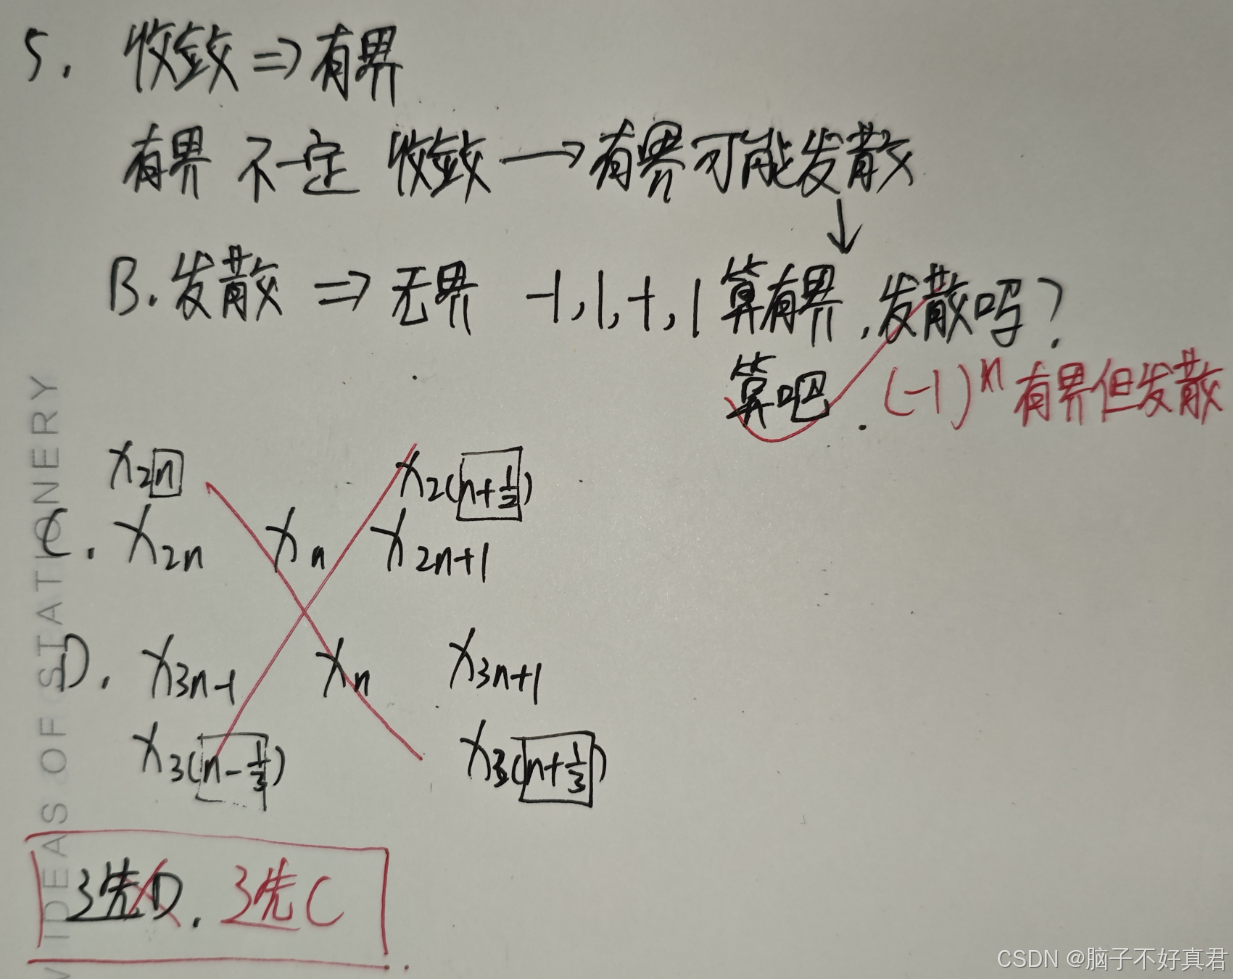 5. 收敛⇒有界
有界 不一定 收敛→有界可能发散
↓
B.发散 ⇒ 无界 -1,1,-1,1 算有界,发散吗?
算吧. (-1)^n 有界但发散
x_{2n} x_{2(n+\frac{1}{2})}
C. x_{2n} x_n x_{2n+1}
D. x_{3n-1} x_n x_{3n+1}
x_{3(n-\frac{1}{3})} x_{3(n+\frac{1}{3})}
3先D. 3先C
IDEAS OF STATIONERY
CSDN @脑子不好真君